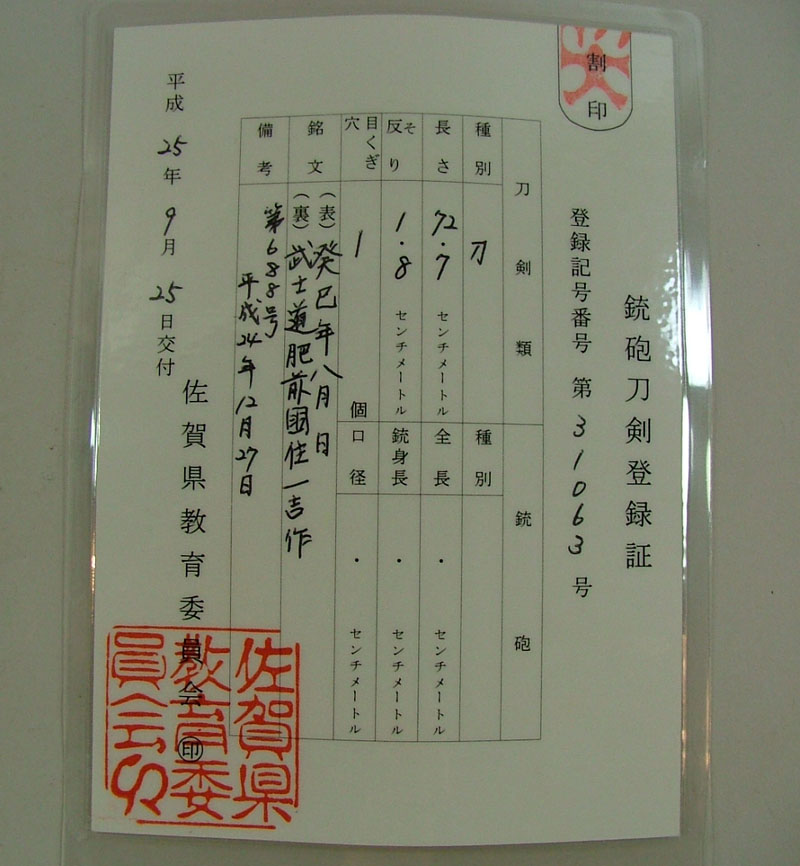 割印
銃砲刀剣登録証
登録記号番号 第31063号
刀剣類
銃砲
種別 刀
種別
長さ 72.7 センチメートル
全長 . センチメートル
反り そり 1.8 センチメートル
銃身長 . センチメートル
目くぎ穴 1 個
口径 . センチメートル
銘文 (表)癸巳年八月日
(裏)武士道肥前國住一吉作
備考 第688号
平成24年12月27日
平成25年9月25日交付
佐賀県教育委員会 印
佐賀県
教育委
員会印